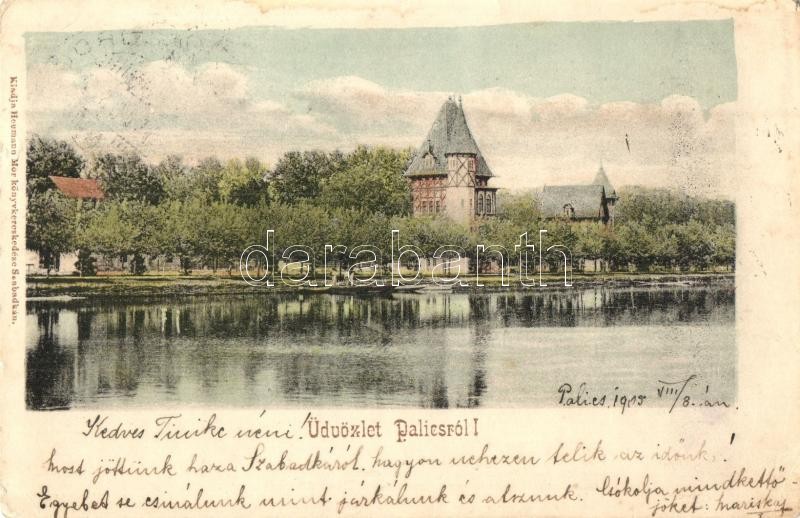 Kiadja Heumann Mór könyvkereskedéze Szabadkán.
darabanth
Palics, 1905 VIII/8.-án.
Kedves Tinike néni! Üdvözlet Palicsról!
Most jöttünk haza Szabadkáról, nagyon nehezen telik az időnk!
Egyebet se csinálunk mint járkálunk és alszunk. Csókolja mindkettő-
jöket: Mariska